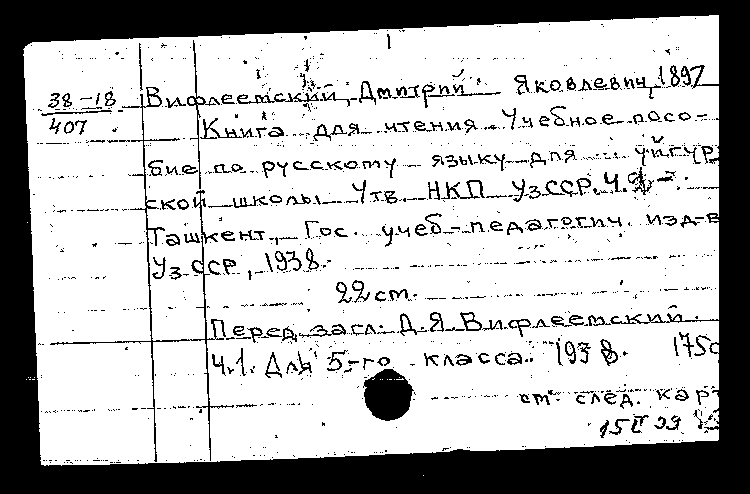 38-18
407
Вифлеемский, Дмитрий Яковлевич, 1897
Книга для чтения. Учебное посо-
бие по русскому языку для уйгур
ской школы Утв. НКП УзССР. Ч.
Ташкент, Гос. учеб-педагогич. изд-в
УзССР, 1938.
22 cm.
Перед загл. Д.Я. Вифлеемский.
Ч.1. Для 5-го класса. 1938. 175с
см. след. кар
15 II 39